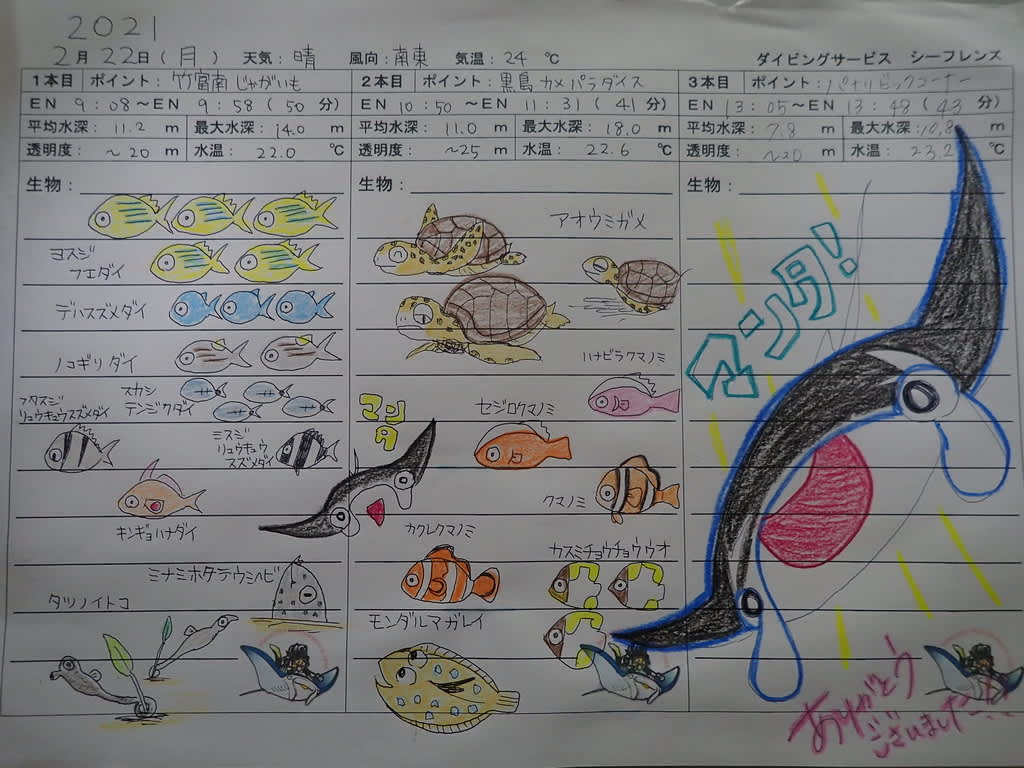 2021
2月 22日(月) 天気:晴 風向:南東 気温:24 ℃ ダイビングサービス シーフレンズ
1本目 ポイント:竹富南 じゃがいも
EN 9:08~EN 9:58(50分)
平均水深:11.2 m 最大水深:14.0 m
透明度:~20 m 水温:22.0 ℃
生物:
ヨスジ
フエダイ
デバスズメダイ
ノコギリダイ
フタスジ
リュウキュウスズメダイ
スカシ
テンジクダイ
ミスジ
リュウキュウ
スズメダイ
キンギョハナダイ
ミナミホタテウミヘビ
タツノイトコ
2本目 ポイント:黒島 カメパラダイス
EN 10:50~EN 11:31(41分)
平均水深:11.0 m 最大水深:18.0 m
透明度:~25 m 水温:22.6 ℃
生物:
アオウミガメ
ハナビラクマノミ
セジロクマノミ
マンタ
クマノミ
カクレクマノミ
カスミチョウチョウウオ
モンダルマガレイ
3本目 ポイント:パナリビックコーナー
EN 13:05~EN 13:48(43分)
平均水深:7.8 m 最大水深:10.8 m
透明度:~20 m 水温:23.2 ℃
生物:
マンタ!
ありがとう
ございました!!